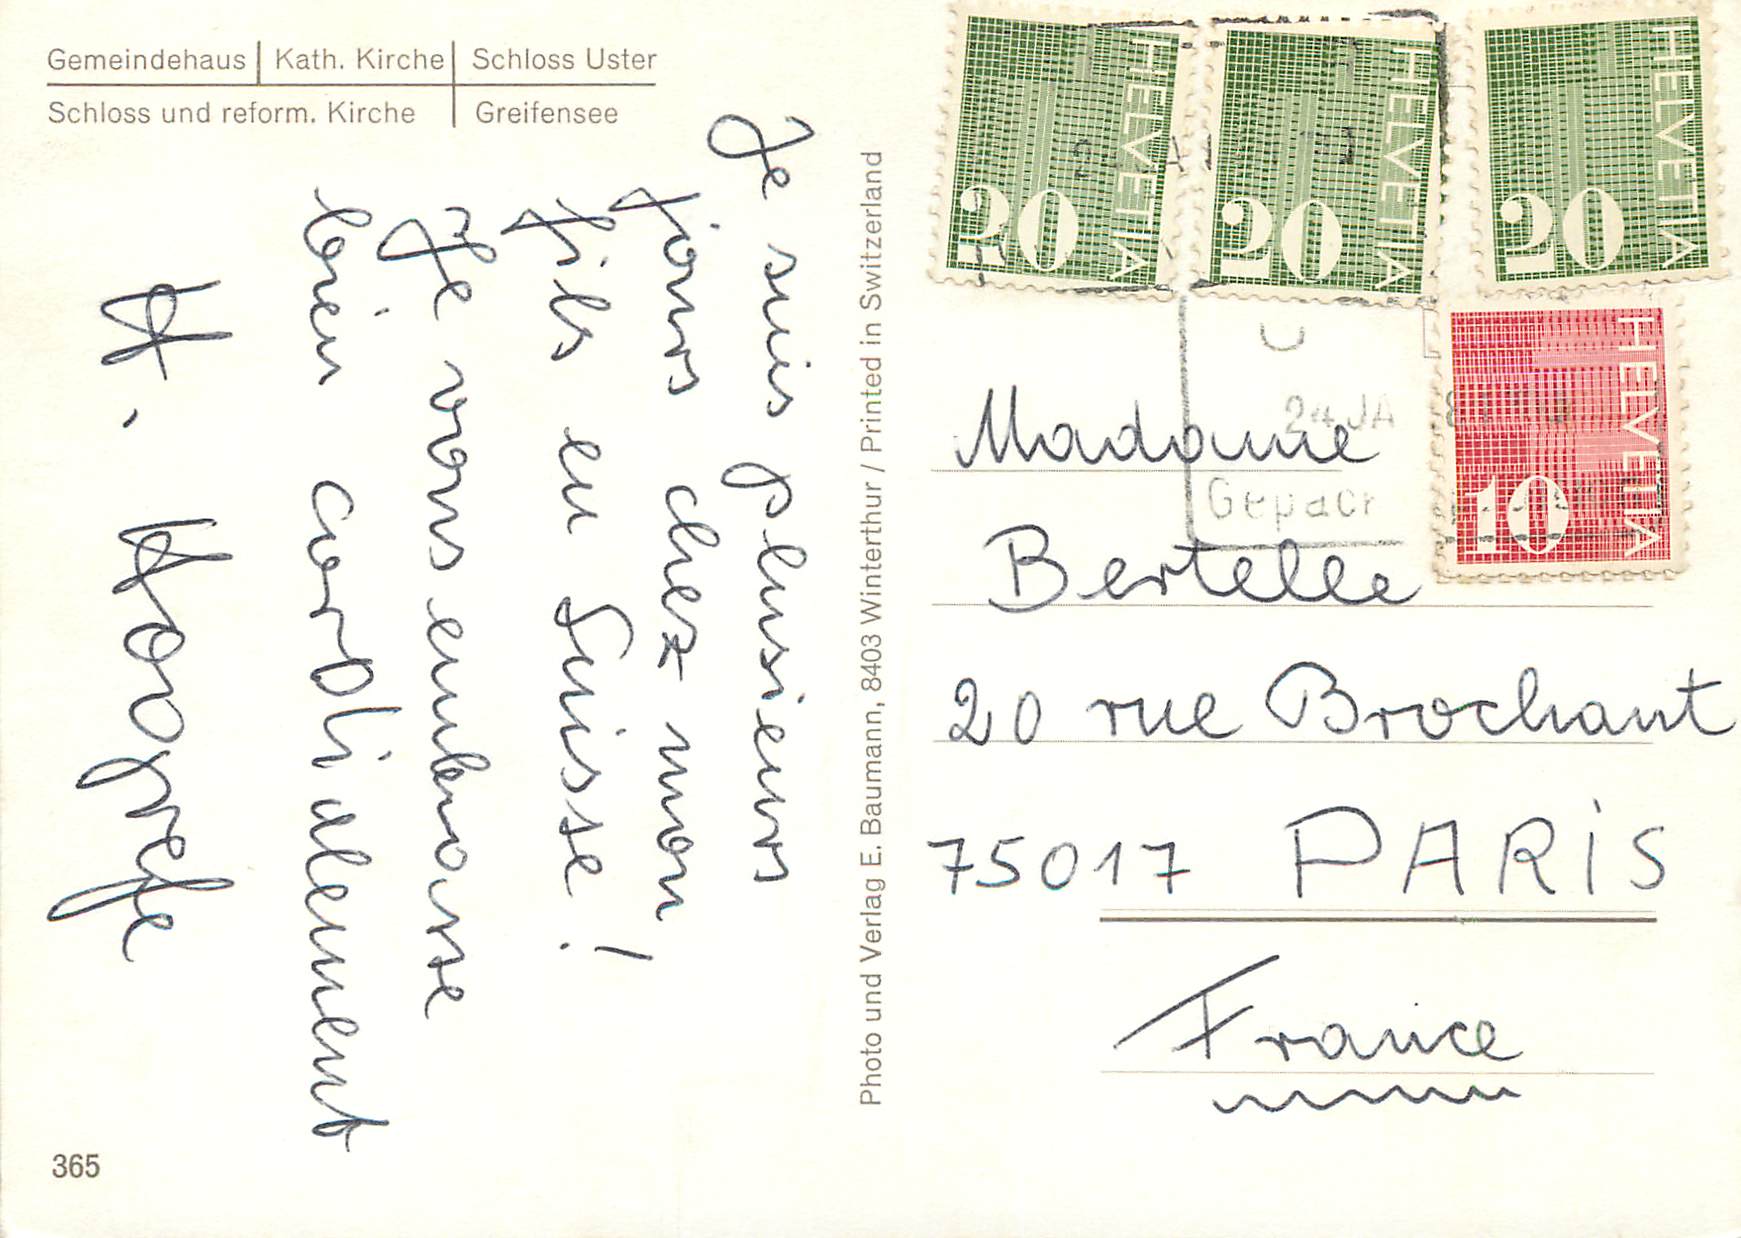 Gemeindehaus Kath. Kirche Schloss Uster
Schloss und reform. Kirche Greifensee
Je suis plusieurs
jours chez mon
fils en Suisse!
Je vous embrasse
bien cordialement
H. Hovgrefe
Photo und Verlag E. Baumann, 8403 Winterthur / Printed in Switzerland
HELVETIA
20
HELVETIA
20
HELVETIA
20
HELVETIA
10
24 JA
Gepäck
Madame
Bertelle
20 rue Brochant
75017 PARIS
France
365